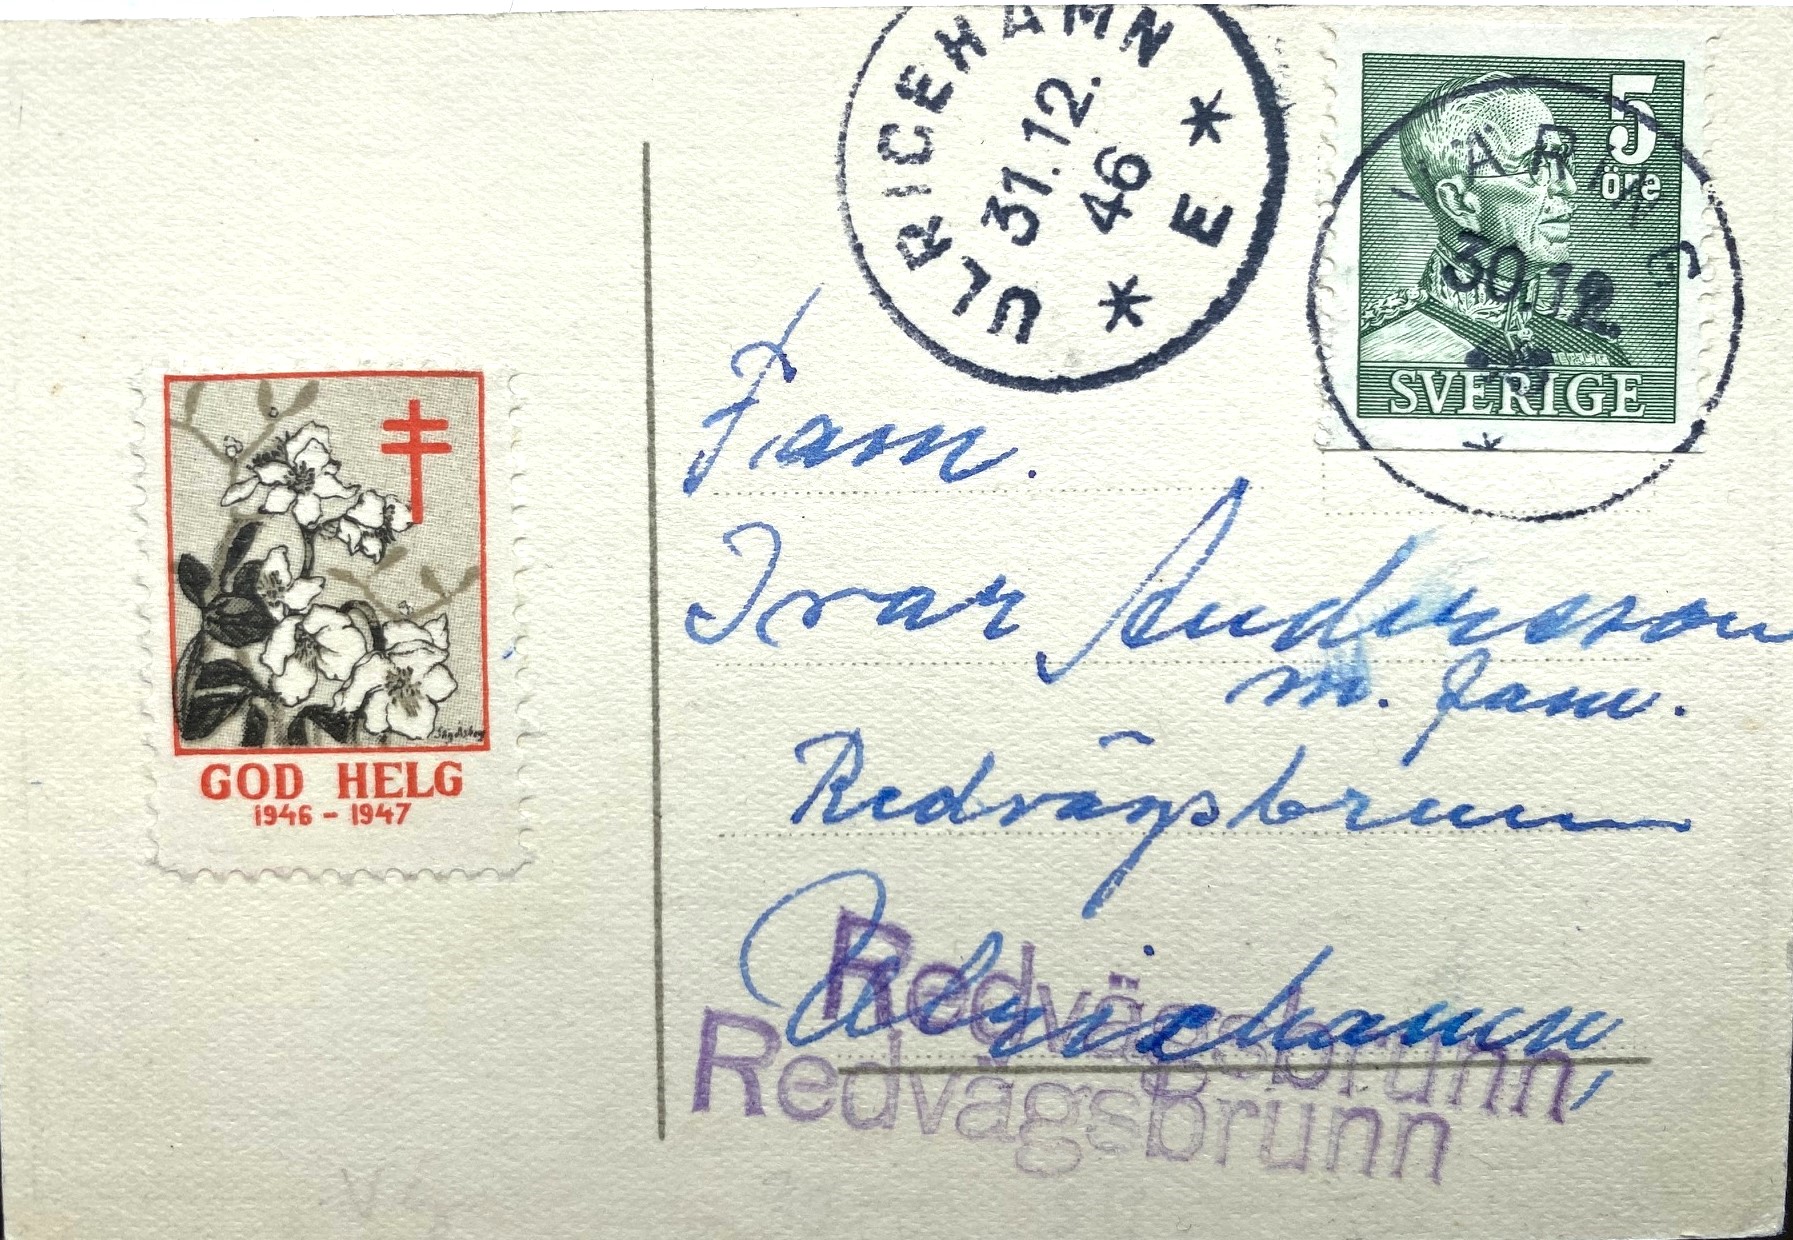 ULRICEHAMN
31.12.
46
* E *
5
öre
30.12.
*
SVERIGE
Fam.
Ivar Andersson
m. fam.
Redvägsbrunn
Ulricehamn
Redvägsbrunn
Redvägsbrunn
GOD HELG
1946 - 1947